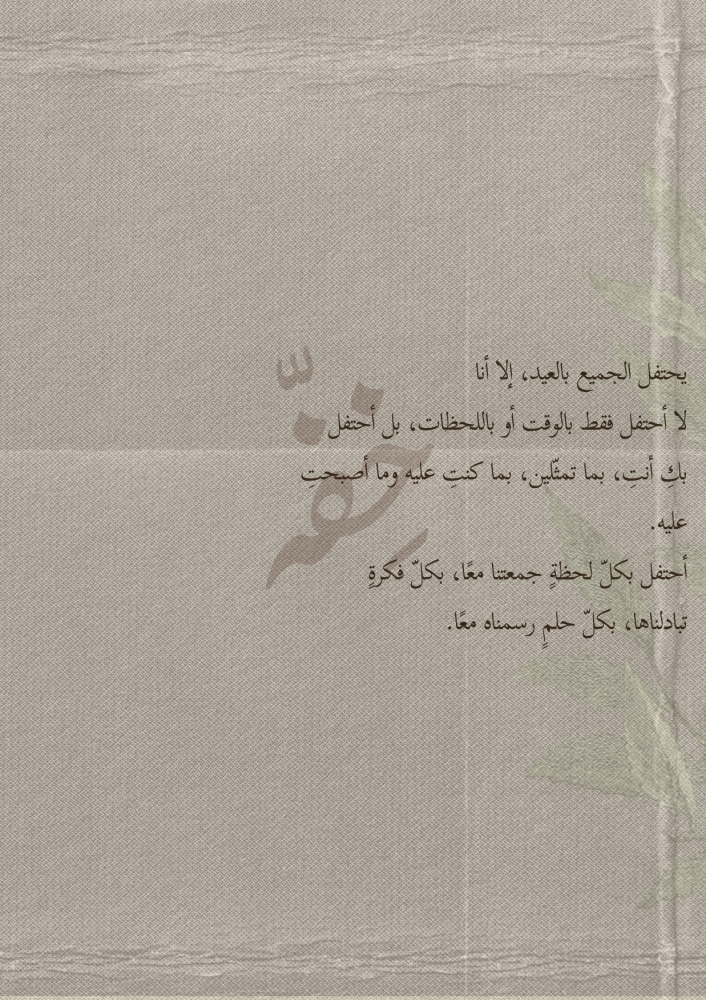 يحتفل الجميع بالعيد، إلا أنا
لا أحتفل فقط بالوقت أو باللحظات، بل أحتفل
بكِ أنتِ، بما تمثّلين، بما كنتِ عليه وما أصبحتِ
عليه.
أحتفل بكلّ لحظةٍ جمعتنا معًا، بكلّ فكرةٍ
تبادلناها، بكلّ حلمٍ رسمناه معًا.
خِفّة